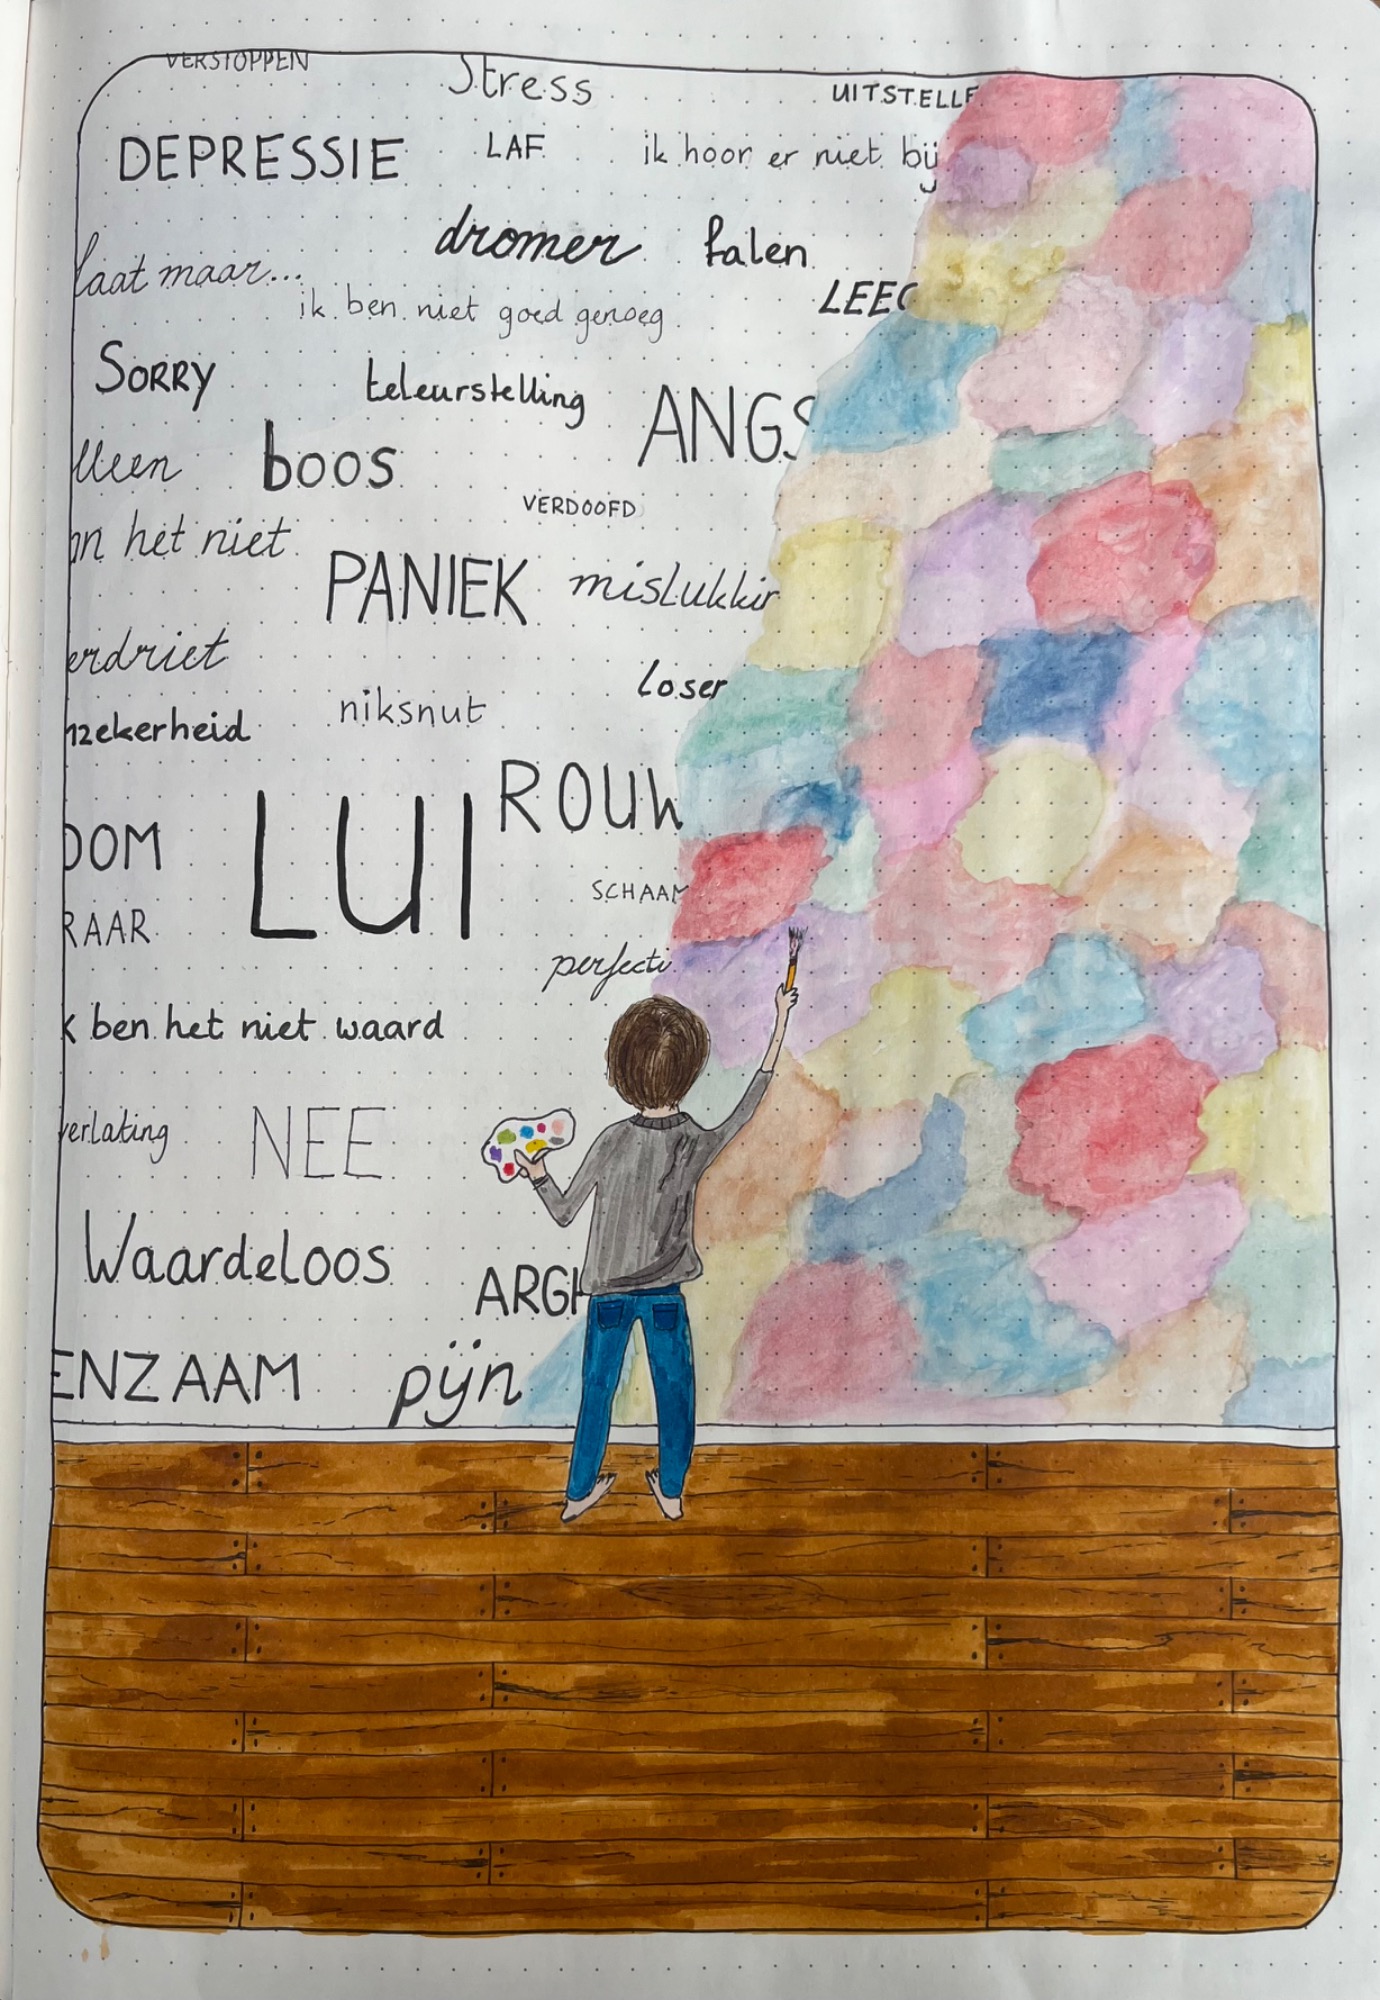 VERSTOPPEN
Stress
UITSTELLE
DEPRESSIE
LAF
ik hoor er niet bij
dromer
falen
laat maar...
LEEG
ik ben niet goed genoeg
SORRY
teleurstelling
ANGS
lleen
boos
VERDOOFD
an het niet
PANIEK
mislukkin
erdriet
loser
niksnut
nzekerheid
ROUW
LUI
DOM
SCHAAM
RAAR
perfecti
k ben het niet waard
verlating
NEE
Waardeloos
ARGH
ENZAAM
pijn